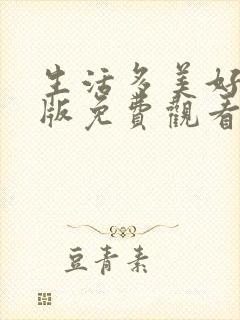 生活多美好
版免費觀看
豆青素